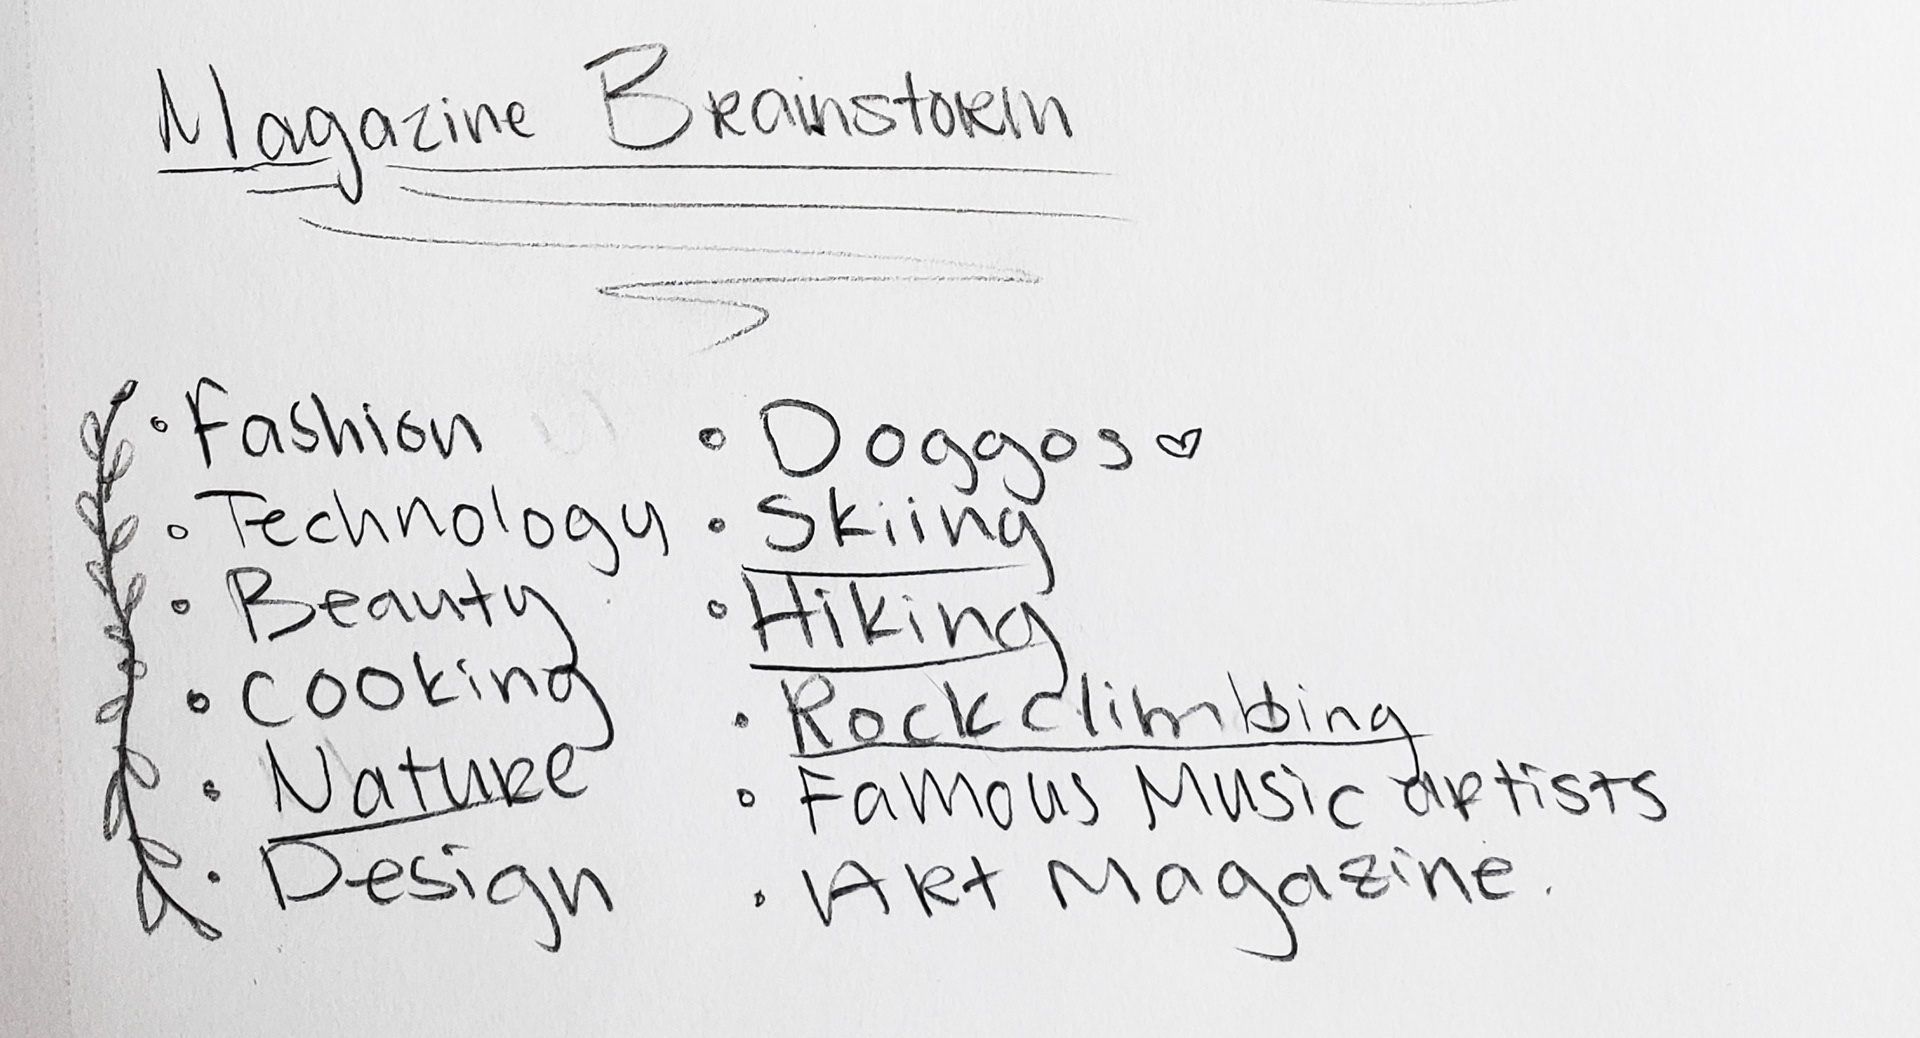 Magazine Brainstorm
• Fashion
• Technology
• Beauty
• Cooking
• Nature
• Design
• Doggos ♡
• Skiing
• Hiking
• Rock climbing
• Famous Music artists
• Art Magazine.